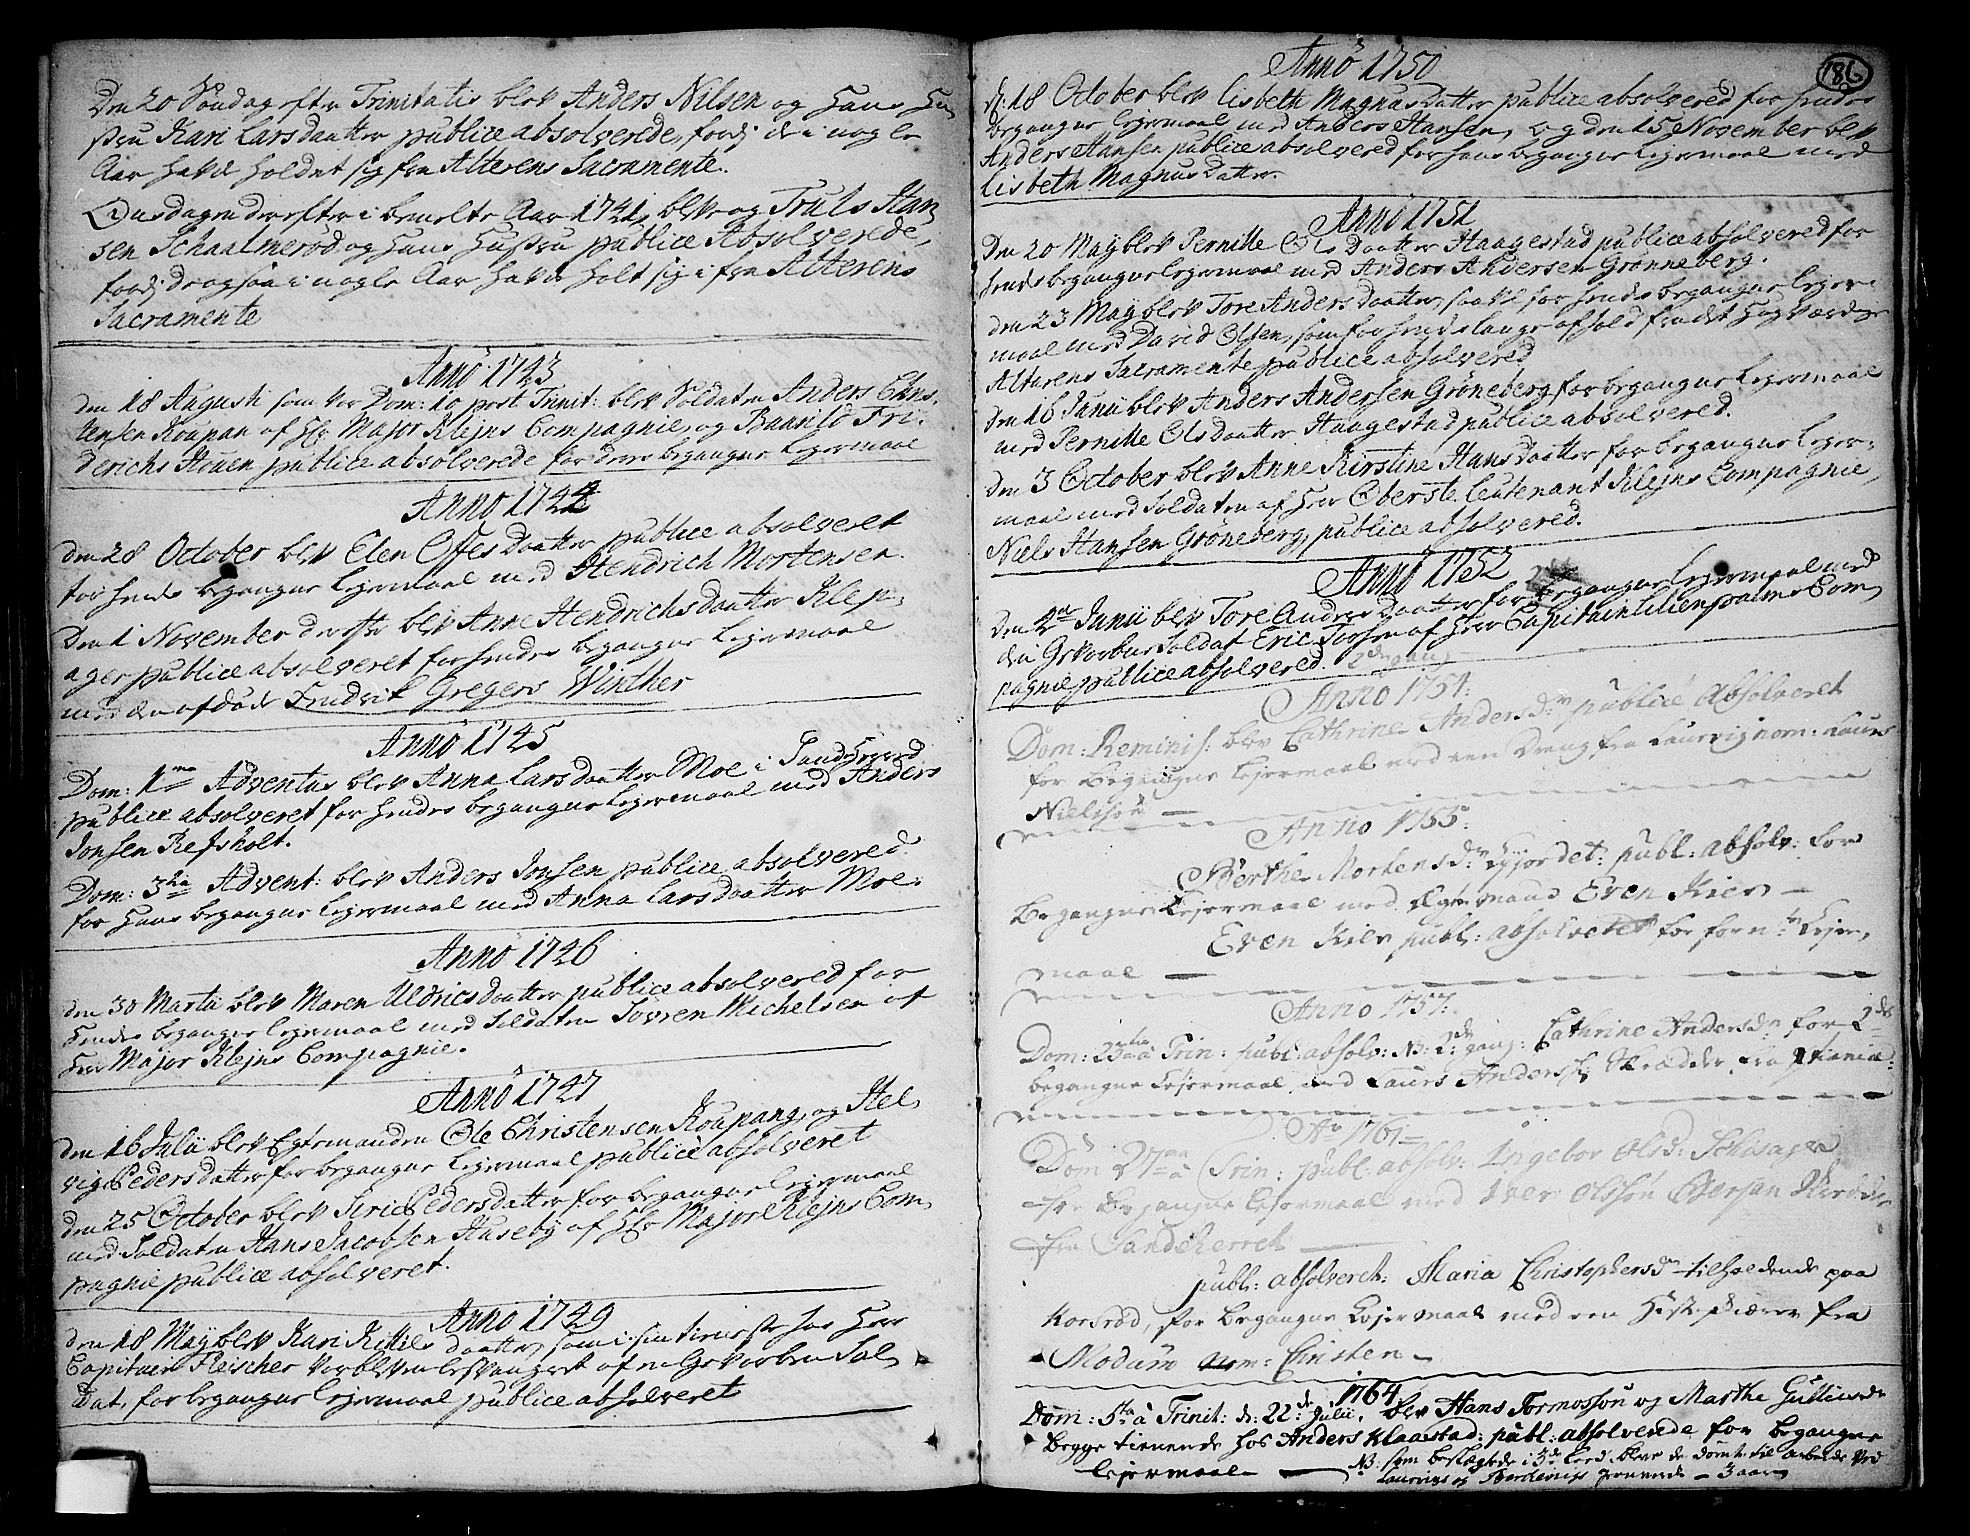 Den 20 Søndag efter Trinitatis blev Anders Nilsen og Hans Hu
stru Kari Larsdaatter publice absolverede, fordj de i nogle
Aar havde holdet sig fra Alterens Sacramente.
Onsdagen derefter i bemelte Aar 1741, bleve og Truls Han
sen Schaalmerød og Hans Hustru publice Absolverede,
fordj de ogsaa i nogle Aar havde holt sig i fra Alterens
Sacramente
Anno 1743
den 18 Augusti som var Dom: 10 post Trinit: blev Soldaten Anders Chris,
tensen Koupan af Hr Major Klejns Compagnie, og Fri,
derichs Houen publice absolverede for deres begangne Lejermaal
Anno 1744
den 28 October blev Elen Offesdaatter publice absolveret
for hendes begangne Lejermaal med Hendrich Mortensen.
Den 1 November derefter blev Anne Hendrichsdaatter Klep,
ager publice absolveret for hendes begangne Lejermaal
med den afdøde Fredrik Gregers Winther
Anno 1745
Dom: 1ma Adventus blev Anna Larsdaatter Moe i Sandherred
publice absolveret for hendes begangne Lejermaal med Anders
Jonsen Refsholt.
Dom: 3tia Advent: blev Anders Jonsen publice absolvered
for Hans begangne Lejermaal med Anna Larsdaatter Moe.
Anno 1746
den 30 Martii blev Maren Uldricsdaatter publice absolvered for
Hendes begangne Lejermaal med Soldaten Søvren Michelsen af
Hr Major Klejns Compagnie.
Anno 1747
den 16 Julii blev Egtemanden Ole Christensen Koupang, og Hel,
vig Pedersdatter for begangne Lejermaal publice absolveret
den 25 October blev Siri Pedersdatter for begangne Lejermaal
med Soldaten Hans Jacobsen Huseby af Hr Major Klejns Com,
pagnie publice absolveret.
Anno 1749
den 18 Maij blev Kari Kittelsdaatter, som i sin tieneste hos Herr
Capitain Fleischer var bleven besvangret af en Gevorben Sol,
dat, for begangne Lejermaal publice absolveret
186
Anno 1750
d: 18 October blev Lisbeth Magnusdatter publice absolvered for hendes
begangne Lejermaal med Anders Hansen, og den 15 November blev
Anders Hansen publice absolvered for hans begangne Lejermaal med
Lisbeth Magnusdatter.
Anno 1751
Den 20 Maij blev Pernille Olsdaatter Haagestad publice absolvered for
hendes begangne Lejermaal med Anders Andersen Grønneberg.
den 23 Maij blev Tore Andersdaatter, saavel for hendes begangne Lejer,
maal med David Olsen, som for hendes lange afhold fra det Høyværdige
Altarens Sacramente publice absolvered
den 16 Junii blev Anders Andersen Grøneberg for begangne Lejermaal
med Pernille Olsdaatter Haagestad publice absolvered.
den 3 October blev Anne Kirstine Hansdaatter for begangne Lejer,
maal med Soldaten af Herr Oberste Leutenant Klejns Compagnie,
Niels Hansen Grøneberg, publice absolvered.
Anno 1752
den 2den Junii blev Tore Andersdaatter for begangne Lejermaal med
den Gevorbne Soldat Eric af Herr Capitain Lilienpalms Com,
pagnie publice absolvered. 2den gang
Anno 1754:
Dom: Reminis: blev Cathrine Andersdr publicè Absolveret
for begangne Lejermaal med een Dreng fra Laurvig nom: Laurs
Nielssøn
Anno 1755:
Berthe Mortensdr Kjordet: publ: absolv: for
Begangne Lejermaal med Egtemand Even Kiev
Even Kiev publ: absolveret for fornte Lejer,
maal
Anno 1757:
Dom: 23tia à Trin: publ: absolv: NB: 2de gang: Cathrine Andersdr for 2de
begangne Lejermaal med Laurs Anders: Skrædder fra
Ao 1761
Dom 27ma à Trin: publ: absolv: Ingebor Olsd:
for Begangne Lejermaal med Iver Olssøn
fra Sandeherret
publ: absolveret: Maria Christophersdr tilholdende paa
Korsrød, for begangne Lejermaal med een fra
Modum nom: Christen
1764
Dom: 5ta à Trinit: d: 22de Julii, blev Hans Tormossøn og Marthe
begge tienende hos Anders Klaastad: publ: absolverede for begangne
Lejermaal. NB: som beslægtede i 3de Leed, bleve de dømte til arbeide ved
Laurvigs og - 3 aar